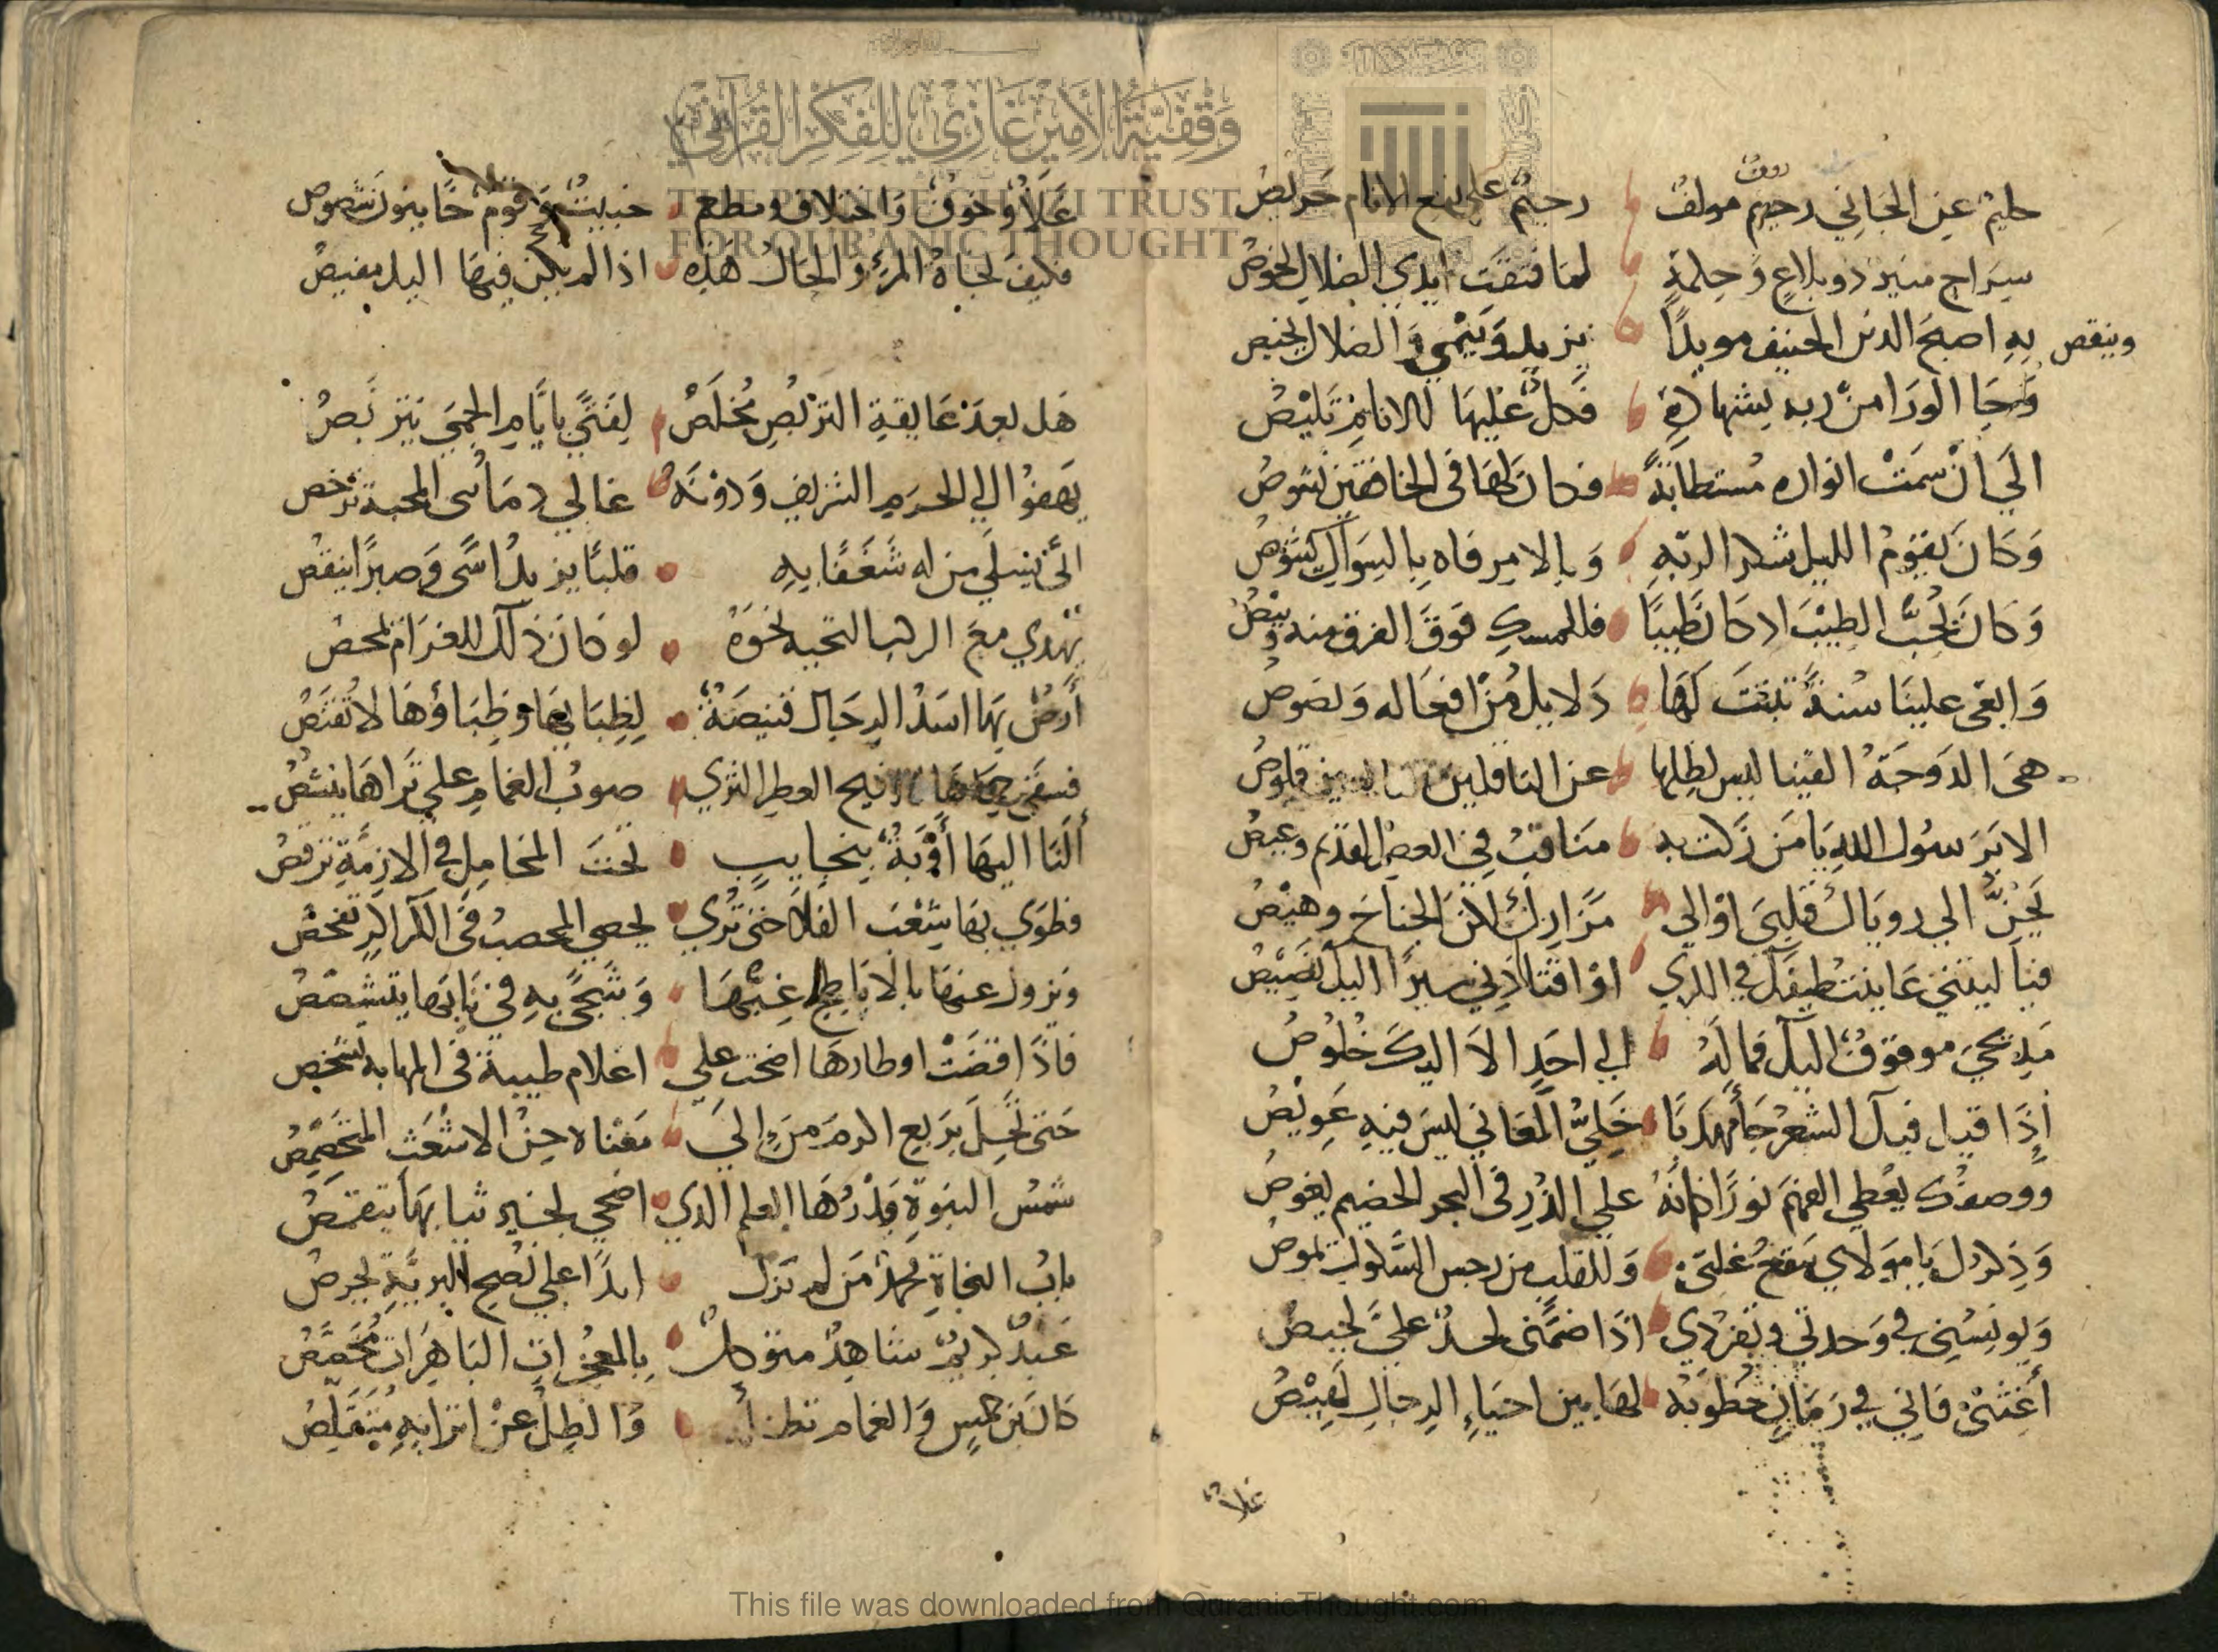 روف
حليم عن الجاني رحيم مولف رحيم على نفع الانام حريص
سراج منير ذو بلاغ وحلمة لما فتقت ايدي الضلال يخوص
وينقص به اصبح الدين الحنيف مويدا يزيد وينمي والضلال يخيص
وجا الورا من ربه بشهادة فكل عليها للانام تليص
الى ان سمت انواره مستطابة فكان لها في الخافقين نشوص
وكان يقوم الليل شكرا لربه وبالامر فاه بالسواك يشوص
وكان يحب الطيب اذ كان طيبا فللمسك فوق الفرق منه وبيص
وابقى علينا سنة تبقت لها دلايل من افعاله ونصوص
هي الدوحة الفينا ليس لظلها عن الناقلين قلوص
الا يا رسول الله يا من زكت به مناقب في العصر القديم وعيص
يحن الى روياك قلبي او الى مزارك لكن الجناح وهيص
فيا ليتني عاينت طيفك في الكرى او اقتادني سيرا اليك نصيص
مديحي موقوف اليك فما له الى احد الا اليك خلوص
اذا قيل فيك الشعر جا مهذبا خلي المعاني ليس فيه عويص
ووصفك يعطي الفهم نورا كانه على الدر في البحر الخضم يغوص
وذكرك يا مولاي ينقع غلتي وللقلب من رجس الشكوك يموص
وبونسني في وحدتي وتفردي اذا ضمني لحد علي لحيص
أغثني فاني في زمان خطوبه لها بين احياء الرجال لعيص
غلاء
غلاء وخوف واختلاف ومطعم خبيث وقوم خاينون شصوص
فكيف نجاة المرء والحال هذه اذا لم يكن فيها اليك مفيص
هل بعد عايقة التربص مخلص لفتى بايام الحمى يتربص
يهفوا الى الحرم الشريف ودونه غالي دما سى المحبة ترخص
انى تسلى من له شغفا به قلبا يزيد اسى وصبرا ينقص
يهدي مع الركب التحية نحوه لو كان ذلك للغرام يمحص
أرض بها اسد الرجال قنيصة لظبايها وظباؤها لا تقنص
فسقى حماها الافيح العطر الثرى صوب الغمام على ثراها ينشص
ألنا اليها أوبة بنجايب تحت المحامل في الازمة ترقص
فطوى بها شعث الفلا حتى ترى لحصى المحصب في الكرا كر تفحص
وتزول عنها بالاباطح غبها وشجى به في نابها يتشصص
فاذا قضت اوطارها اضحت على اعلام طيبة في المهابه تشخص
حتى تحل بربع اكرم من الى مغناه حن الاشعث المتخمص
شمس النبوة بدرها العلم الذي اضحى لخير ثيابها يتقمص
باب النجاة محمد من لم تزل ابدا على نصح البرية يحرص
عبد كريم شاهد متوكل بالمعجزات الباهرات مخصص
كالنرجس والغمام تظله والظل عن اترابه متقلص
وقفية الأمير غازي للفكر القرآني
THE PRINCE GHAZI TRUST
FOR QUR'ANIC THOUGHT
This file was downloaded from QuranicThought.com